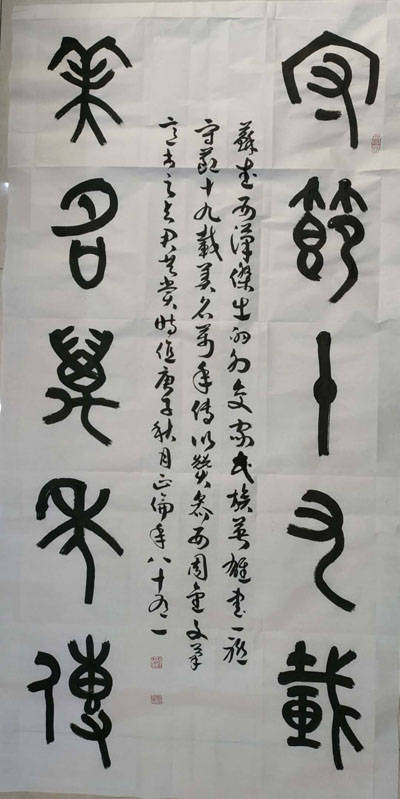 守節十九載
蘇武西漢傑出的外交家民族英雄書一聯
守節十九載美名萬年傳以贊參西周金文筆
意書之與君共賞時值庚子秋月正倫年八十有一
美名萬年傳